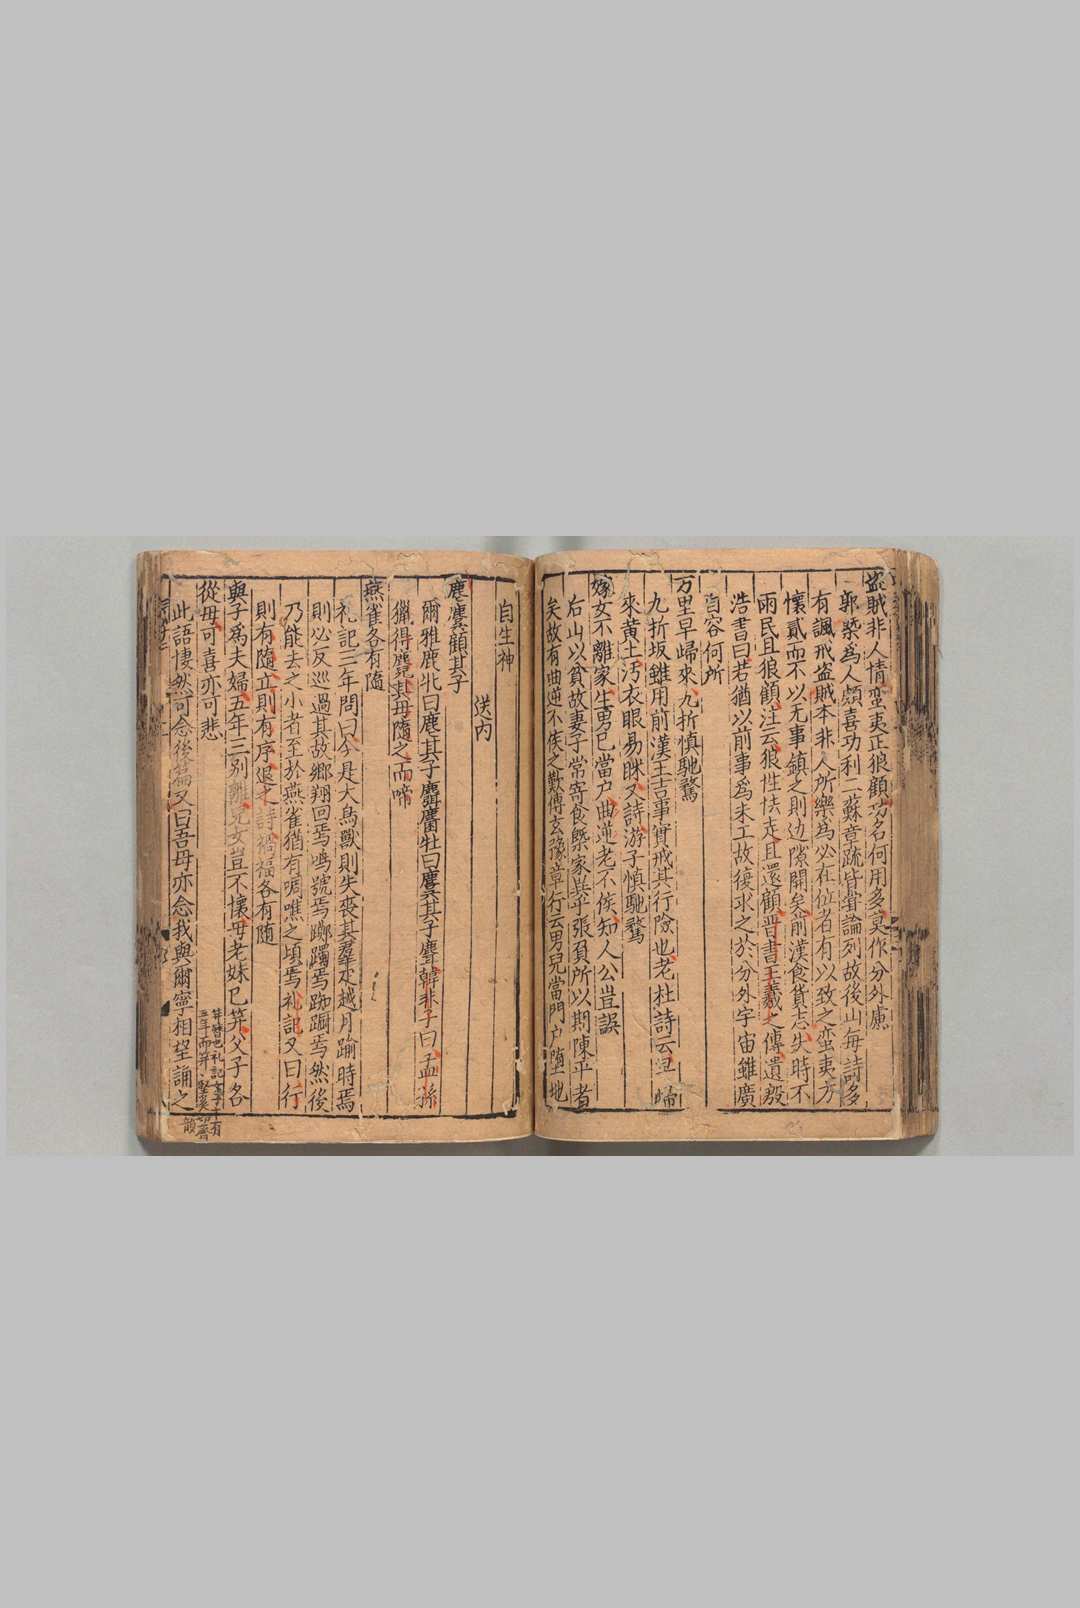 盗賊非人情蛮夷正狼顧功名何用多莫作分外慮
郭槩為人頗喜功利二蘇章疏皆甞論列故後山每詩多
有諷戒盗賊本非人所樂為必在位者有以致之蛮夷方
懷貳而不以无事鎮之則边隙開矣前漢食貨志失時不
雨民且狼顧注云狼性怯走且還顧晋書王羲之傳遺殷
浩書曰若猶以前事為未工故復求之於分外宇宙雖廣
自容何所
万里早歸來九折慎馳騖
九折坂雖用前漢王吉事實戒其行險也老杜詩云 歸
來黄土汚衣眼易眯又詩游子慎馳騖
嫁女不離家生男已當户曲逆老不侯知人公豈誤
右山以貧故妻子常寄食槩家共平張負所以期陳平者
矣故有曲逆不侯之歎傅玄豫章行云男兒當門户堕地
自生神
送内
麀麌顧其子
爾雅鹿牝曰麀其子麛麕牡曰麌其子麆韓非子曰孟孫
獵得麑其母隨之而啼
燕雀各有隨
礼記三年問曰今是大鳥獸則失喪其羣匹越月踰時焉
則必反巡過其故鄉翔回焉鳴號焉蹢躅焉踟蹰焉然後
乃能去之小者至於燕雀猶有啁噍之頃焉礼記又曰行
則有隨立則有序退之詩禍福各有随
與子為夫婦五年三別離兒女豈不懷母老妹已笄父子各
從母可喜亦可悲
此語悽然可念後篇又曰吾母亦念我與爾寧相望誦之